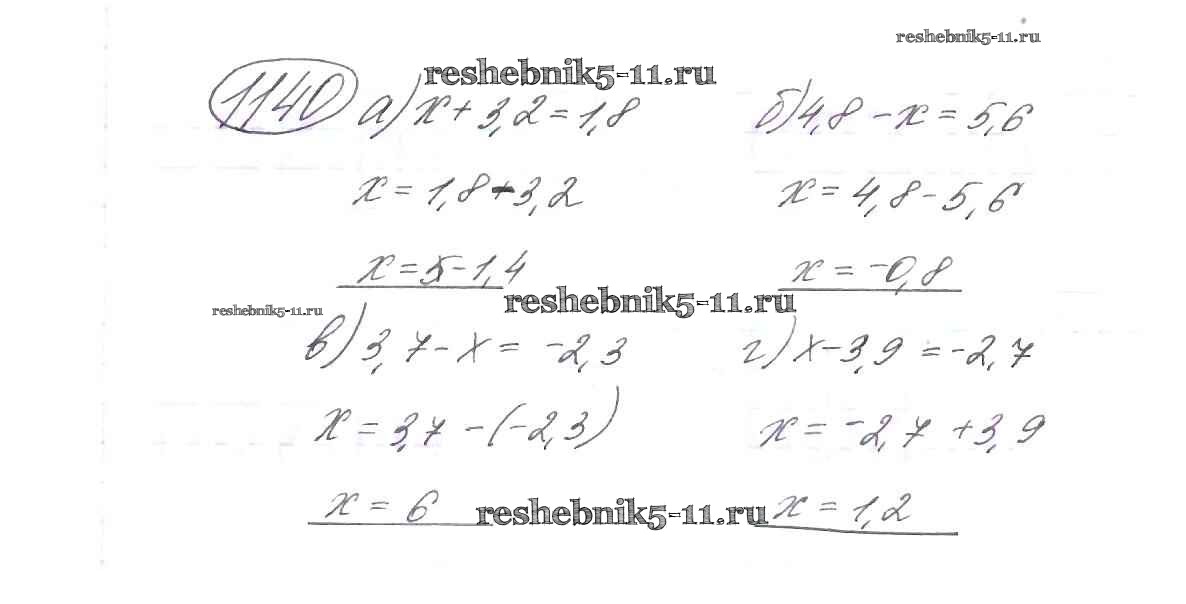 reshebnik5-11.ru
reshebnik5-11.ru
1140 а) x + 3,2 = 1,8 б) 4,8 - x = 5,6
x = 1,8 - 3,2 x = 4,8 - 5,6
x = 5 - 1,4 x = -0,8
reshebnik5-11.ru
reshebnik5-11.ru
в) 3,7 - x = -2,3 г) x - 3,9 = -2,7
x = 3,7 - (-2,3) x = -2,7 + 3,9
x = 6 x = 1,2
reshebnik5-11.ru